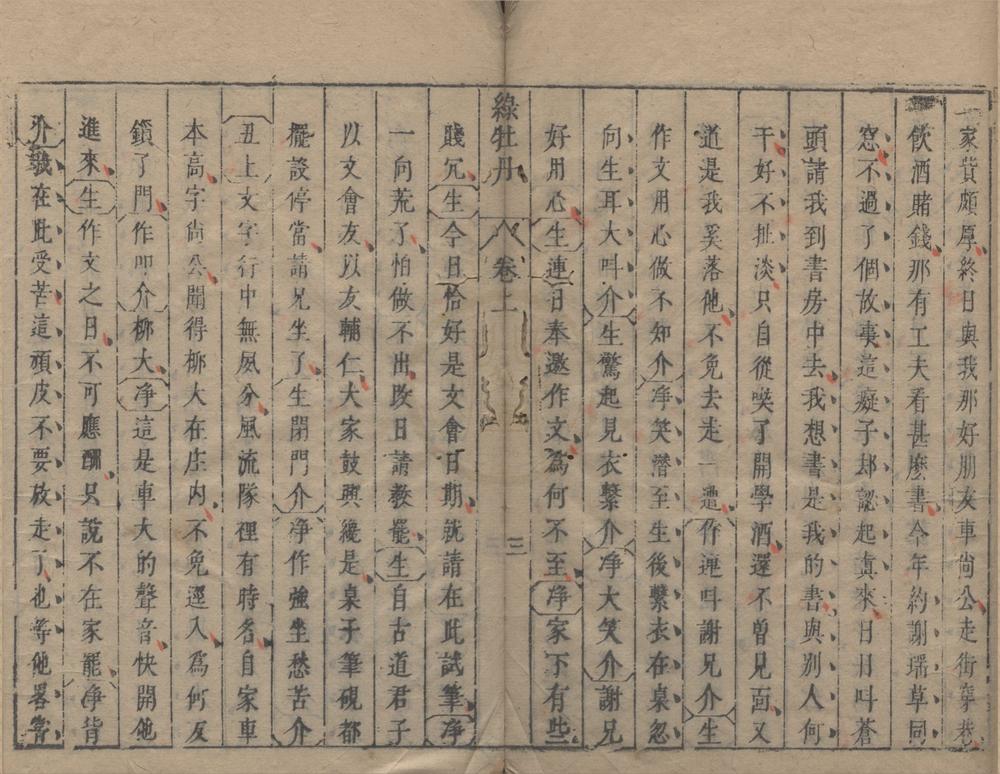 一家貲頗厚終日與我那好朋友車尚公走街穿巷
飲酒賭錢那有工夫看甚麽書今年約謝瑶草同
窓不過了個故事這癡子却認起真來日日叫蒼
頭請我到書房中去我想書是我的書與別人何
干好不扯淡只自從喫了開學酒還不曾見面又
道是我奚落他不免去走一遭作連呌謝兄介生
作文用心做不知介净笑潛至生後繫衣在桌忽
向生耳大呌介生驚起見衣繫介净大笑介謝兄
好用心生連日奉邀作文爲何不至净家下有些
綠牡丹 卷上 三
賤冗生今日恰好是文會日期就請在此試筆净
一向荒了怕做不出改日請教罷生自古道君子
以文會友以友輔仁大家鼓興纔是桌子筆硯都
擺設停當請兄坐了生閉門介净作強坐愁苦介
丑上文字行中無夙分風流隊裡有時名自家車
本高字尚公聞得柳大在庄内不免逕入爲何反
鎖了門作叩介柳大净這是車大的聲音快開他
進來生作文之日不可應酬只說不在家罷净背
介我在此受苦這頑皮不要放走了他等他畧